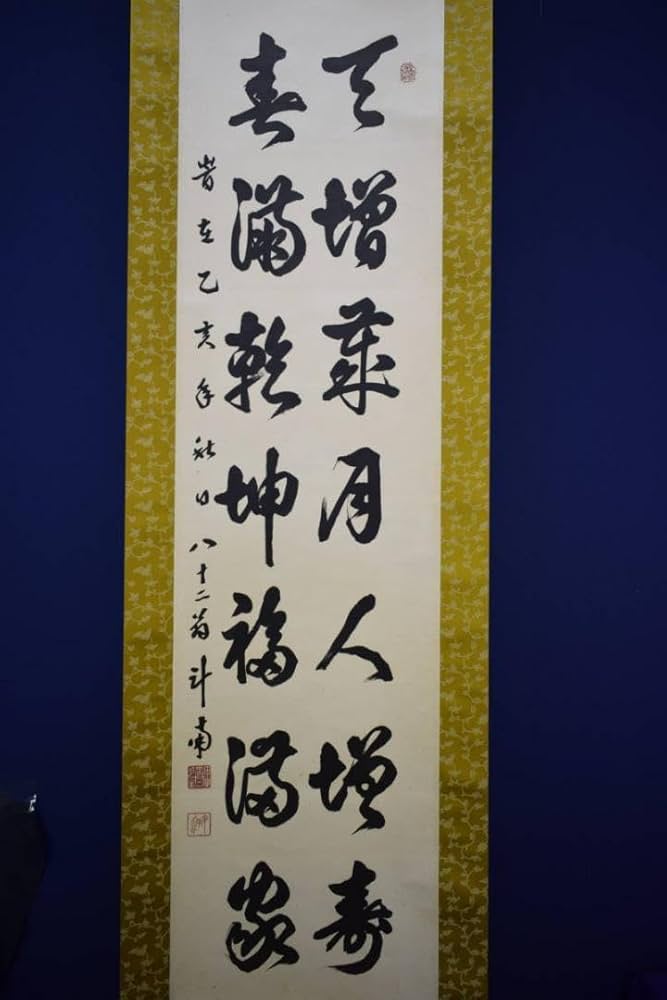 天增歳月人增壽
春滿乾坤福滿家
旹在乙亥年秋日八十二翁斗南